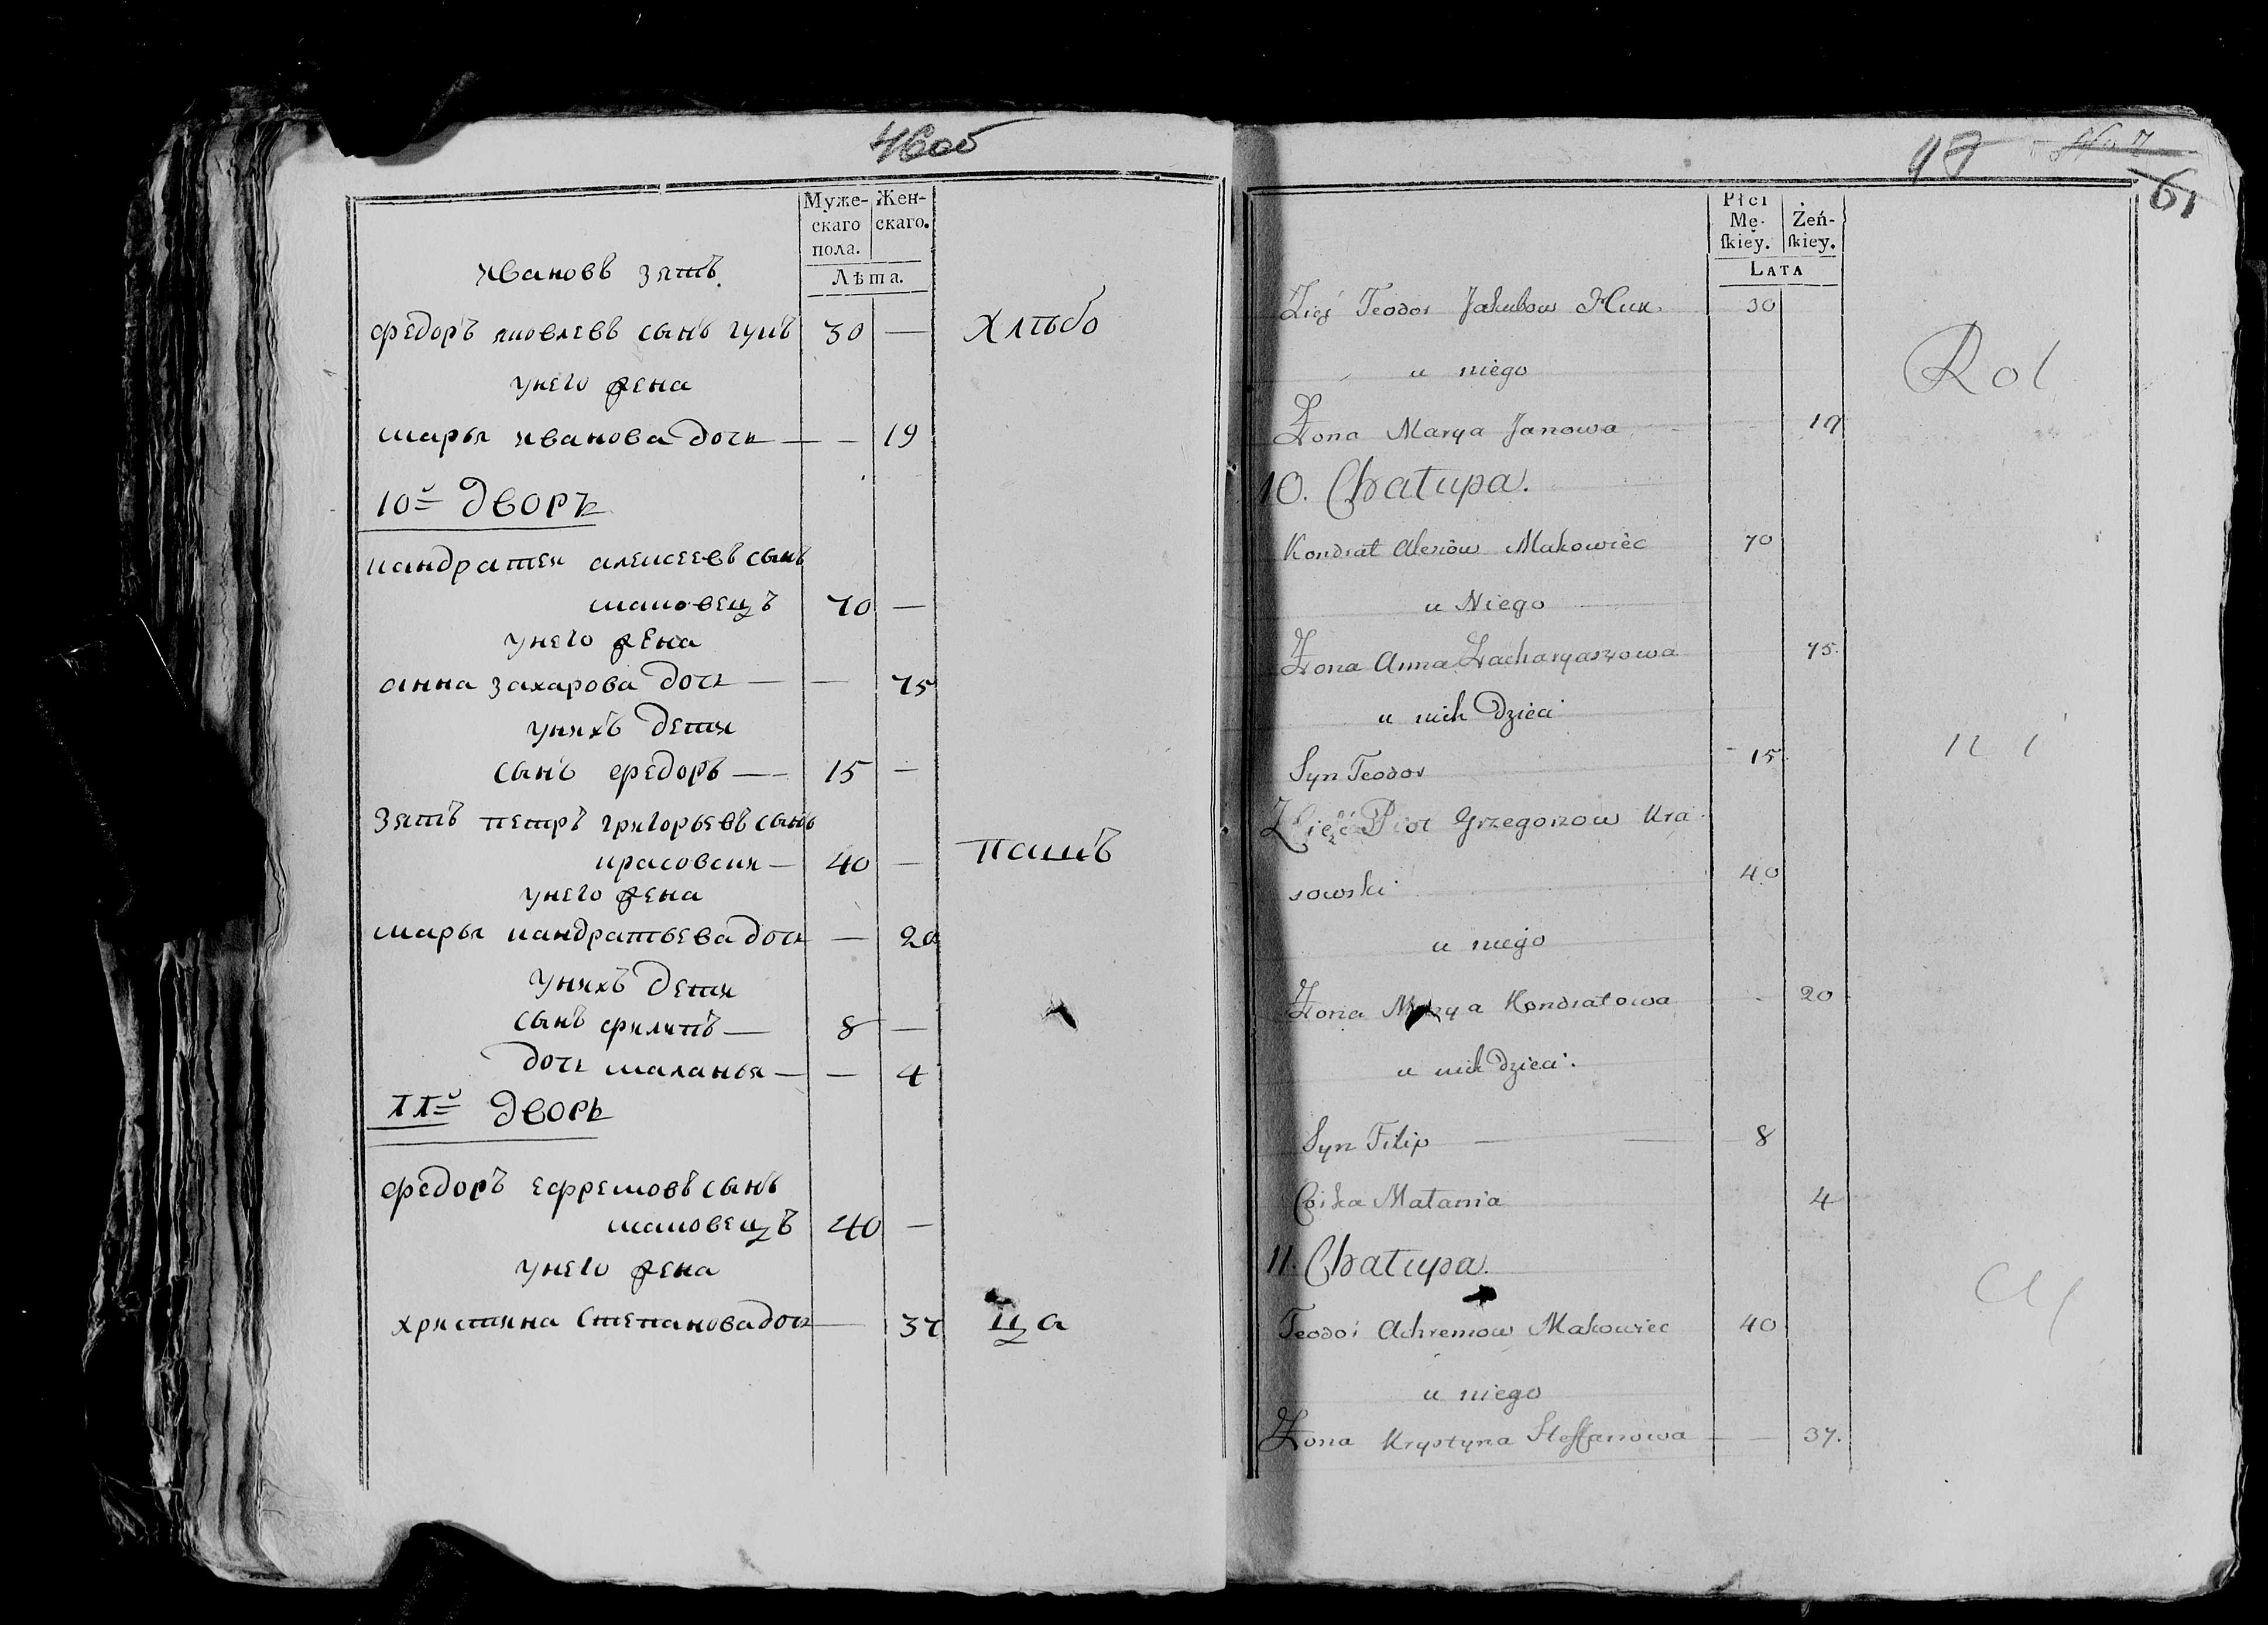 46об
Муже-
скаго
пола.
Жен-
скаго.
Лѣта.
Ивановъ зять
Федоръ яковлевъ сынъ гукъ 30 —
Хлѣбо
унего жена
марья иванова дочь — — 19
10й дворъ
кандратей алексеевъ сынъ
маковецъ 70 —
унего жена
анна захарова дочь — — 75
унихъ дети
сынъ федоръ — 15 —
зять петръ григорьевъ сынъ
красовски — 40 —
пашъ
унего жена
марья кандратьева дочь — 20
унихъ дети
сынъ филипъ — 8 —
дочь маланья — — 4
11й дворъ
федоръ ефремовъ сынъ
маковецъ 40 —
унего жена
христина степанова дочь — 37
ца
61
Płci
Mę-
ſkiey.
Żeń-
ſkiey.
LATA
Zięć Teodor Jakubow Huk 30
Rol
u niego
Żona Marya Janowa 19
10. Chałupa.
Kondrat Alexiow Makowiec 70
u Niego
Żona Anna Zacharyaszowa 75.
u nich Dzieci
Syn Teodor 15
ni
Zięć Piotr Grzegorzow Kra
sowski 40
u niego
Żona Marya Kondratowa 20
u nich Dzieci.
Syn Filip — — 8
Córka Małania 4
11. Chałupa.
Teodor Achremow Makowiec 40
cy
u niego
Żona Krystyna Steffanowa — — 37.